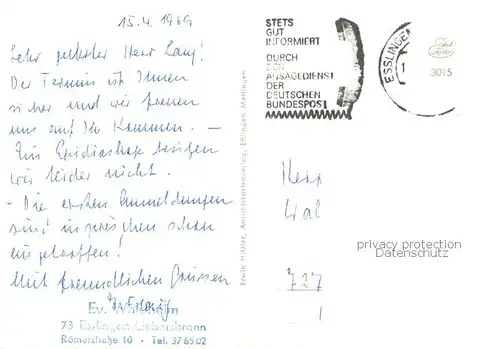 15.4.1969
Sehr geehrter Herr Lang!
Der Termin ist Ihnen
sicher und wir freuen
uns auf Ihr Kommen. —
Ein Epidiaskop besitzen
wir leider nicht.
- Die ersten Anmeldungen
sind inzwischen schon
eingetroffen!
Mit freundlichen Grüssen
Ev. Waldheim
73 Esslingen-Liebersbronn
Römerstraße 10 • Tel. 37 65 02
Erwin Hitzler, Ansichtskartenverlag, Eßlingen-Mettingen
STETS
GUT
INFORMIERT
DURCH
DEN
ANSAGEDIENST
DER
DEUTSCHEN
BUNDESPOST
ESSLINGEN
1
3015
Herr
727
privacy protection
Datenschutz